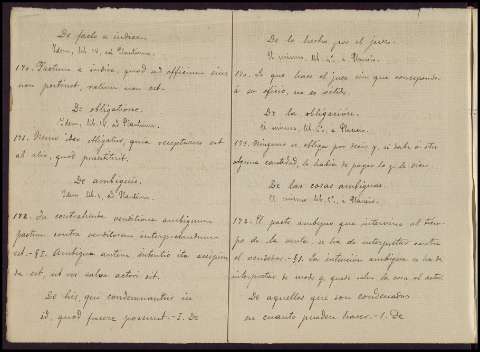 De facto a iudice.
Idem, lib. IV, ad Plautium.
170. Factum a iudice, quod ad officium eius
non pertinet, ratum non est.
De obligatione.
Idem, lib. IV, ad Plautium.
171. Nemo ideo obligatur, quia recepturus est
ab alio, quod praestiterit.
De ambiguis.
Idem, lib. V, ad Plautium.
172. In contrahenda venditione ambiguum
pactum contra venditorem interpretandum
est.-§ I. Ambigua autem intentio ita accipien
da est, ut res salva actori sit.
De his, qui condemnantur in
id, quod facere possunt.-I. De
De lo hecho por el juez.
El mismo, lib. , a Plaucio.
170. Lo que hace el juez sin que corresponda
á su oficio, no es válido.
De la obligación.
El mismo, lib. , a Plaucio.
171. Ninguno se obliga por decir q. si sabe á otro
alguna cantidad, le habia de pagar lo q. le
De las cosas ambiguas.
El mismo lib. , a Plaucio.
172. El pacto ambiguo que intervino al tiem-
po de la venta se ha de interpretar contra
el vendedor.-§ 1. La intencion ambigua se ha de
interpretar de modo q. quede salva la cosa al actor.
De aquellos que son condenados
en cuanto pueden hacer.-1. De